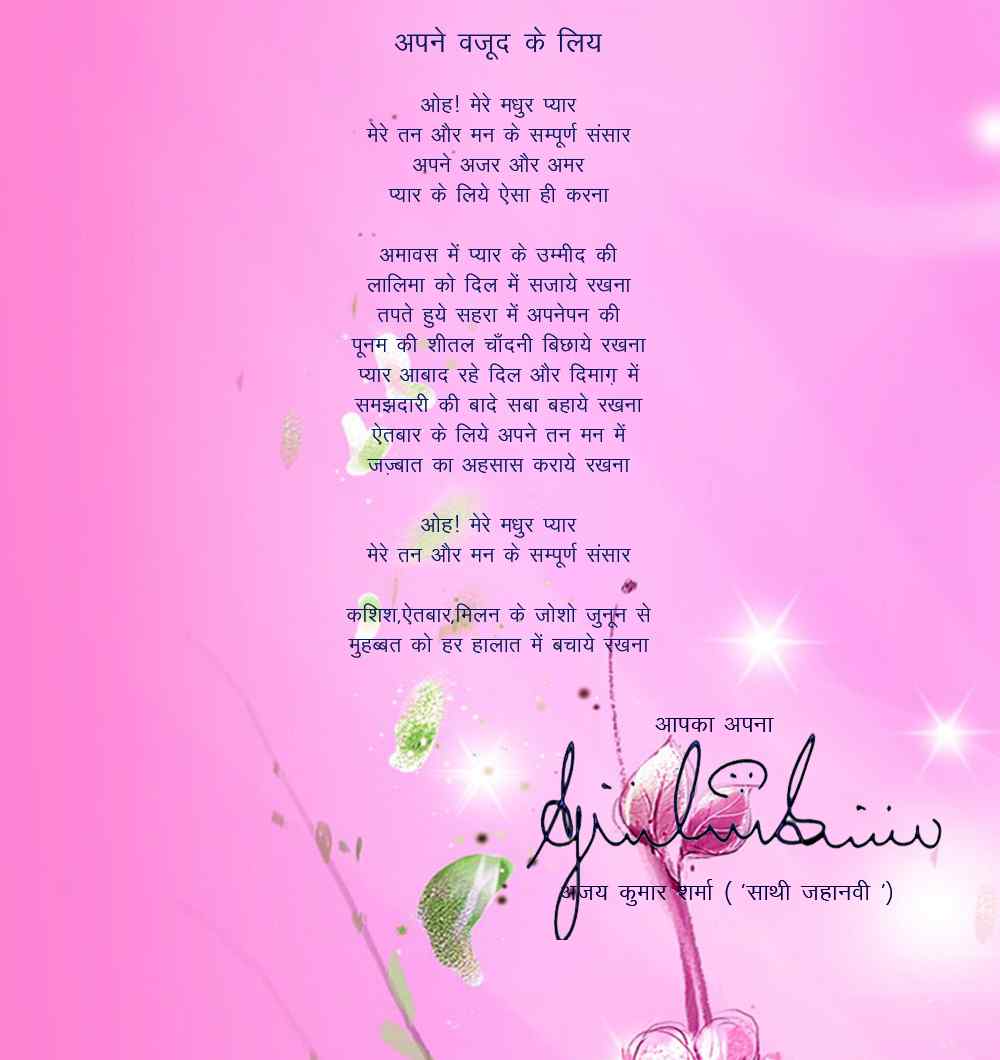 अपने वजूद के लिय
ओह! मेरे मधुर प्यार
मेरे तन और मन के सम्पूर्ण संसार
अपने अजर और अमर
प्यार के लिये ऐसा ही करना
अमावस में प्यार के उम्मीद की
लालिमा को दिल में सजाये रखना
तपते हुये सहरा में अपनेपन की
पूनम की शीतल चाँदनी बिछाये रखना
प्यार आबाद रहे दिल और दिमाग़ में
समझदारी की बादे सबा बहाये रखना
ऐतबार के लिये अपने तन मन में
जज़्बात का अहसास कराये रखना
ओह! मेरे मधुर प्यार
मेरे तन और मन के सम्पूर्ण संसार
कशिश,ऐतबार,मिलन के जोशो जुनून से
मुहब्बत को हर हालात में बचाये रखना
आपका अपना
अजय कुमार शर्मा ( 'साथी जहानवी ')